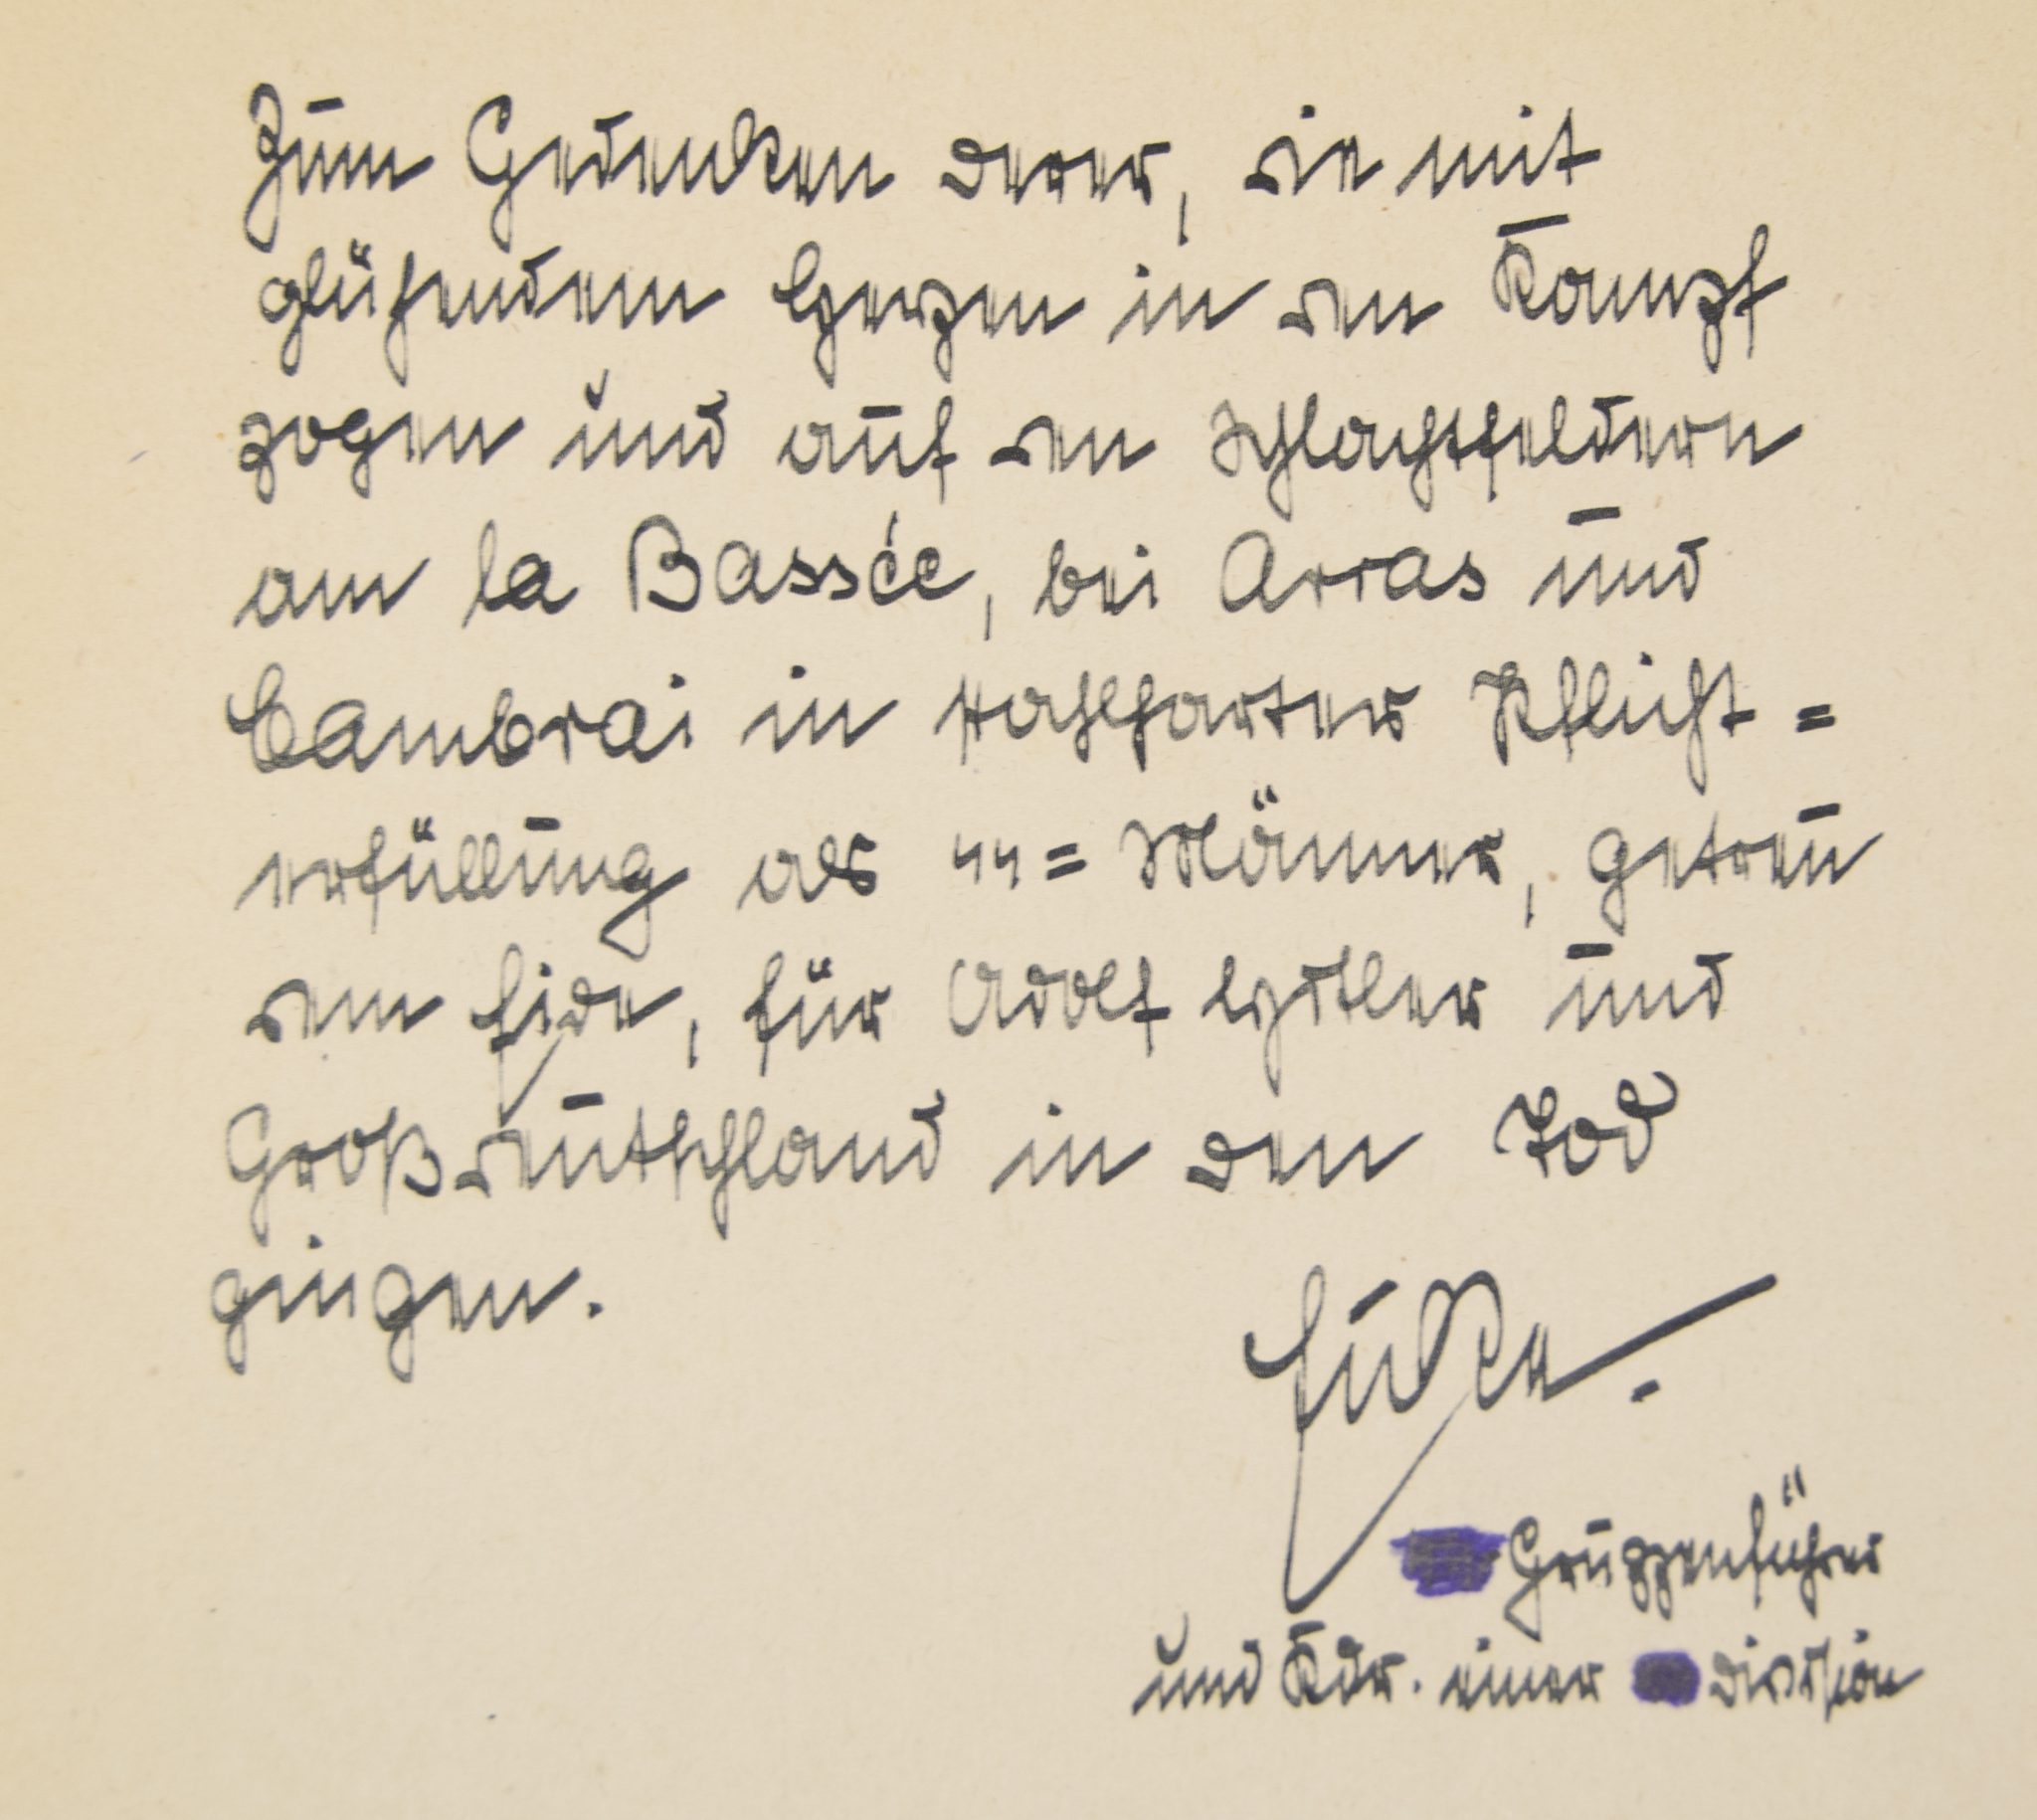 Zum Gedenken derer, die mit
glühendem Herzen in den Kampf
zogen und auf den Schlachtfeldern
am la Bassée, bei Arras und
Cambrai in stahlharter Pflicht=
erfüllung als SS=Männer, getreu
dem Eide, für Adolf Hitler und
Großdeutschland in den Tod
gingen.
Eicke.
Gruppenführer
und Kdr. einer Division